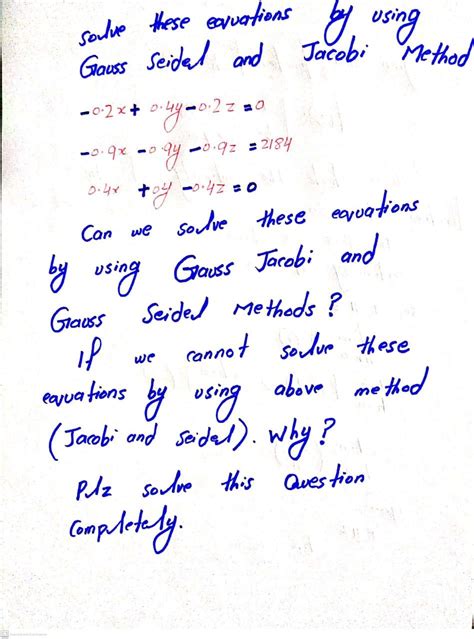 solve these equations by using
Gauss Seidel and Jacobi Method
-0.2x + 0.4y -0.2z = 0
-0.9x -0.9y -0.9z = 2184
0.4x +0y -0.4z = 0
Can we solve these equations
by using Gauss Jacobi and
Gauss Seidel Methods?
If we cannot solve these
equations by using above method
(Jacobi and Seidel). Why?
Plz solve this Question
Completely.